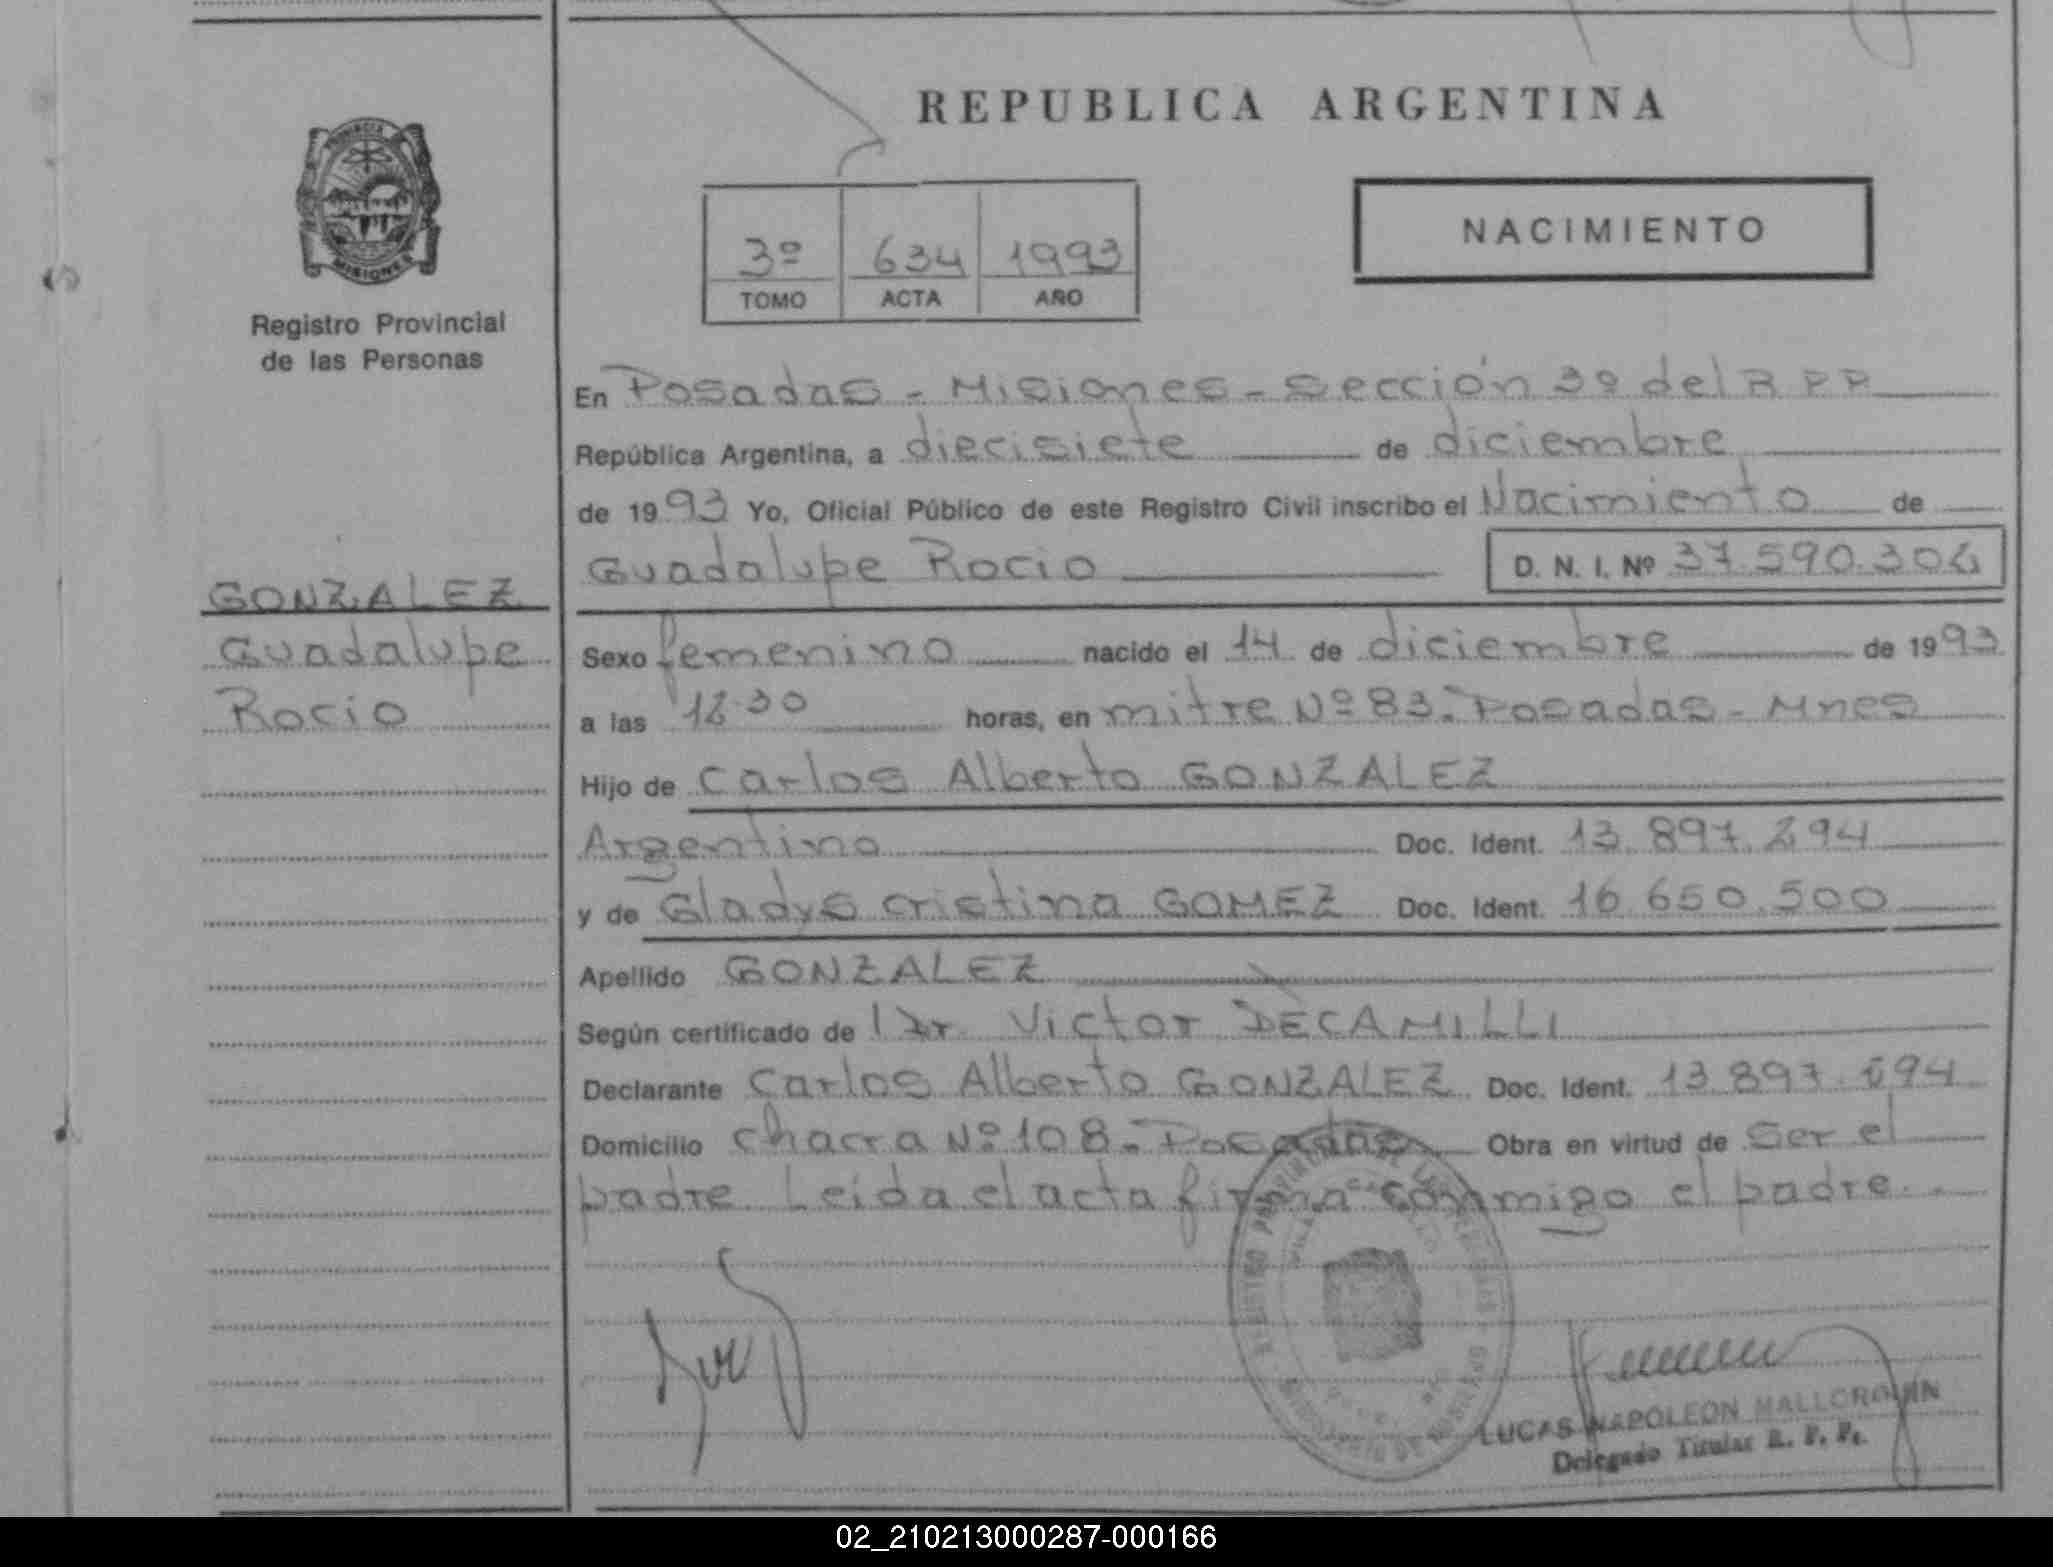 REPUBLICA ARGENTINA
PROVINCIA
MISIONES
Registro Provincial
de las Personas
3º 634 1993
TOMO ACTA AÑO
NACIMIENTO
En Posadas - Misiones - Sección 3º del R P P
República Argentina, a diecisiete de diciembre
de 1993 Yo, Oficial Público de este Registro Civil inscribo el Nacimiento de
Guadalupe Rocio D. N. I. Nº 37.590.304
GONZALEZ
Guadalupe
Rocio
Sexo femenino nacido el 14 de diciembre de 1993
a las horas, en mitre Nº 83. Posadas - Mnes
Hijo de Carlos Alberto GONZALEZ
Argentino Doc. Ident. 13.897.294
y de Gladys Cristina GOMEZ Doc. Ident. 16.650.500
Apellido GONZALEZ
Según certificado de Dr. Victor DECAMILLI
Declarante Carlos Alberto GONZALEZ Doc. Ident. 13.897.294
Domicilio chacra Nº 108. Posadas Obra en virtud de Ser el
padre. Leida el acta firma conmigo el padre.
LUCAS NAPOLEON MALLORQUIN
Delegado Titular R. P. P.
02_210213000287-000166